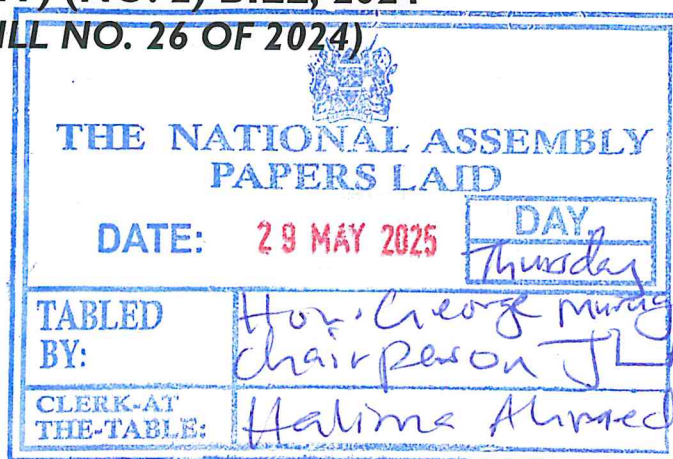 (NO. 2) BILL, 2024
BILL NO. 26 OF 2024)
THE NATIONAL ASSEMBLY
PAPERS LAID
DATE: 29 MAY 2025
DAY
Thursday
TABLED
BY:
Hon. George
Chairperson JL
CLERK-AT
THE-TABLE:
Halima Ahmed